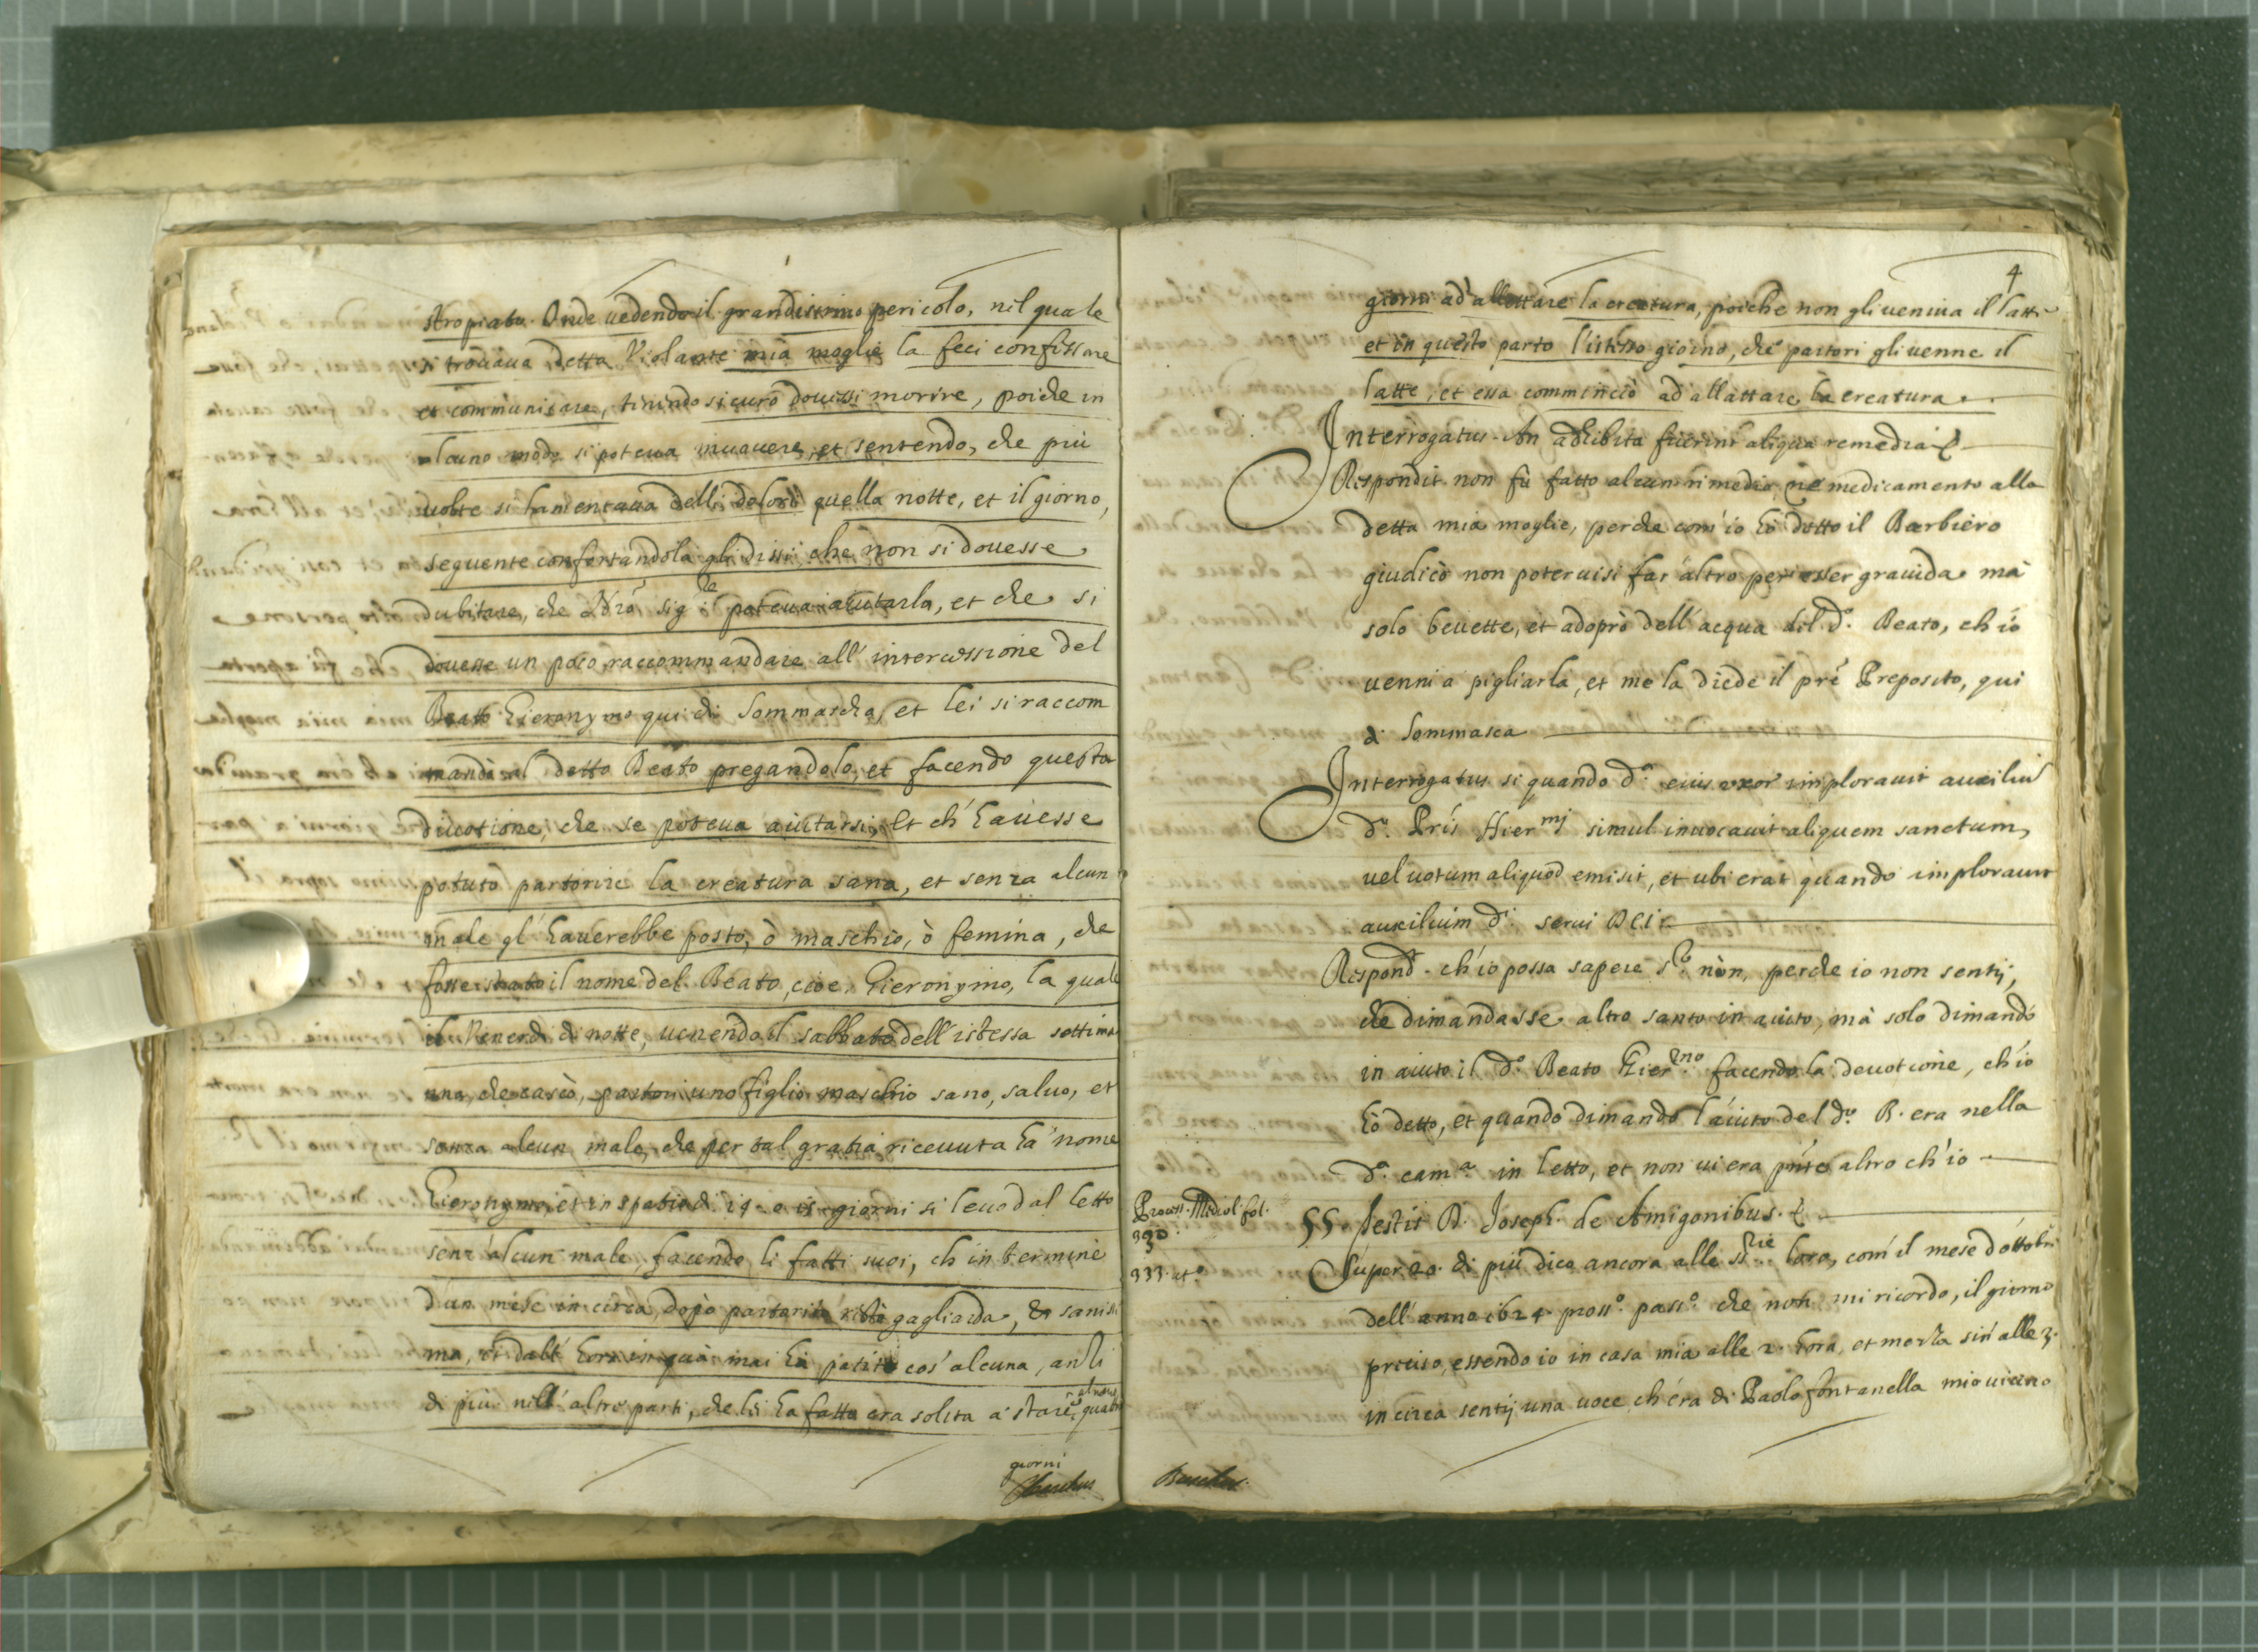 stropiata. Onde vedendo il grandissimo pericolo, nel quale
si trovava detta Violante mia moglie la feci confessare
et communicare, tenendo sicuro dovessi morire, poiche in
alcuno modo si poteva muovere, et sentendo, che più
volte si lamentava delli dolori quella notte, et il giorno,
seguente confortandola gli dissi, che non si dovesse
dubitare, che Nrõ sig.re il poteva aiutarla, et che si
dovesse un poco raccommandare all' intercessione del
Beato Hieronymo qui di Sommascha, et lei si raccom
mandò al detto Beato pregandolo, et facendo questa
divotione, che se poteva aiutarsi, et ch' havesse
potuto partorire la creatura sana, et senza alcun
male gl' haverebbe posto, ò maschio, ò femina, che
fosse stato il nome del Beato, cioe Hieronymo, la quale
il Venerdi di notte, venendo il sabbato dell' istessa settima
una, che cascò, partori uno figlio maschio sano, salvo, et
senza alcun male, che per tal gratia ricevuta ha' nome
Hieronymo, et in spatio di 14. o 15 giorni si levò dal letto
senz' alcun male, facendo li fatti suoi, ch' in termine
d'un mese in circa, dopo partorito restò gagliarda, et saniss
ma, et dall' hora in quà mai hà patito cos' alcuna, anzi
di più nell' altri parti, che lei ha fatto era solita a' stare almeno quattro
giorni
4
giorni ad' allattare la creatura, poiche non gli veniva il latte
et in questo parto l'istesso giorno, che partori gli venne il
latte, et essa comminciò ad' allattare la creatura.
Interrogatus. An adhibita fuerint aliqua remedia &
Respondit non fù fatto alcun rimedio, ne medicamento alla
detta mia moglie, perche com' io hò detto il Barbiero
giudicò non potervisi far' altro per esser gravida mà
solo bevette, et adoprò dell' acqua del d.º Beato, ch' io
venni a pigliarla, et me la diede il prẽ Preposito, qui
di Sommasca
Interrogatus si quando d.ª eius uxor imploravit auxiliũ
d.i Prĩs Hier.mj simul invocavit aliquem sanctum,
vel votum aliquod emisit, et ubi erat quando imploravit
auxilium d.i servi Dei.
Respond.t ch' io possa sapere s.r nòn, perche io non sentij,
che dimandasse altro santo in aiuto, mà solo dimandò
in aiuto il d.º Beato Hier.mo facendo la devotione, ch' io
hò detto, et quando dimandò l'aiuto del d.º B. era nella
d.ª cam.ª in letto, et non vi era pñte altro ch' io
Process. Mediol. fol.
390.
333. at.º
55. Testis D. Joseph. de Amigonibus. &
Super 20. di più dico ancora alle SS.rie loro, com' il mese d' ottobre
dell' anno 1624. pross.º pass.º che non mi ricordo, il giorno
preciso, essendo io in casa mia alle 2. hora, et mezza sin' alle 3.
in circa sentij una voce, ch' era di Paolo fontanella mio vicino